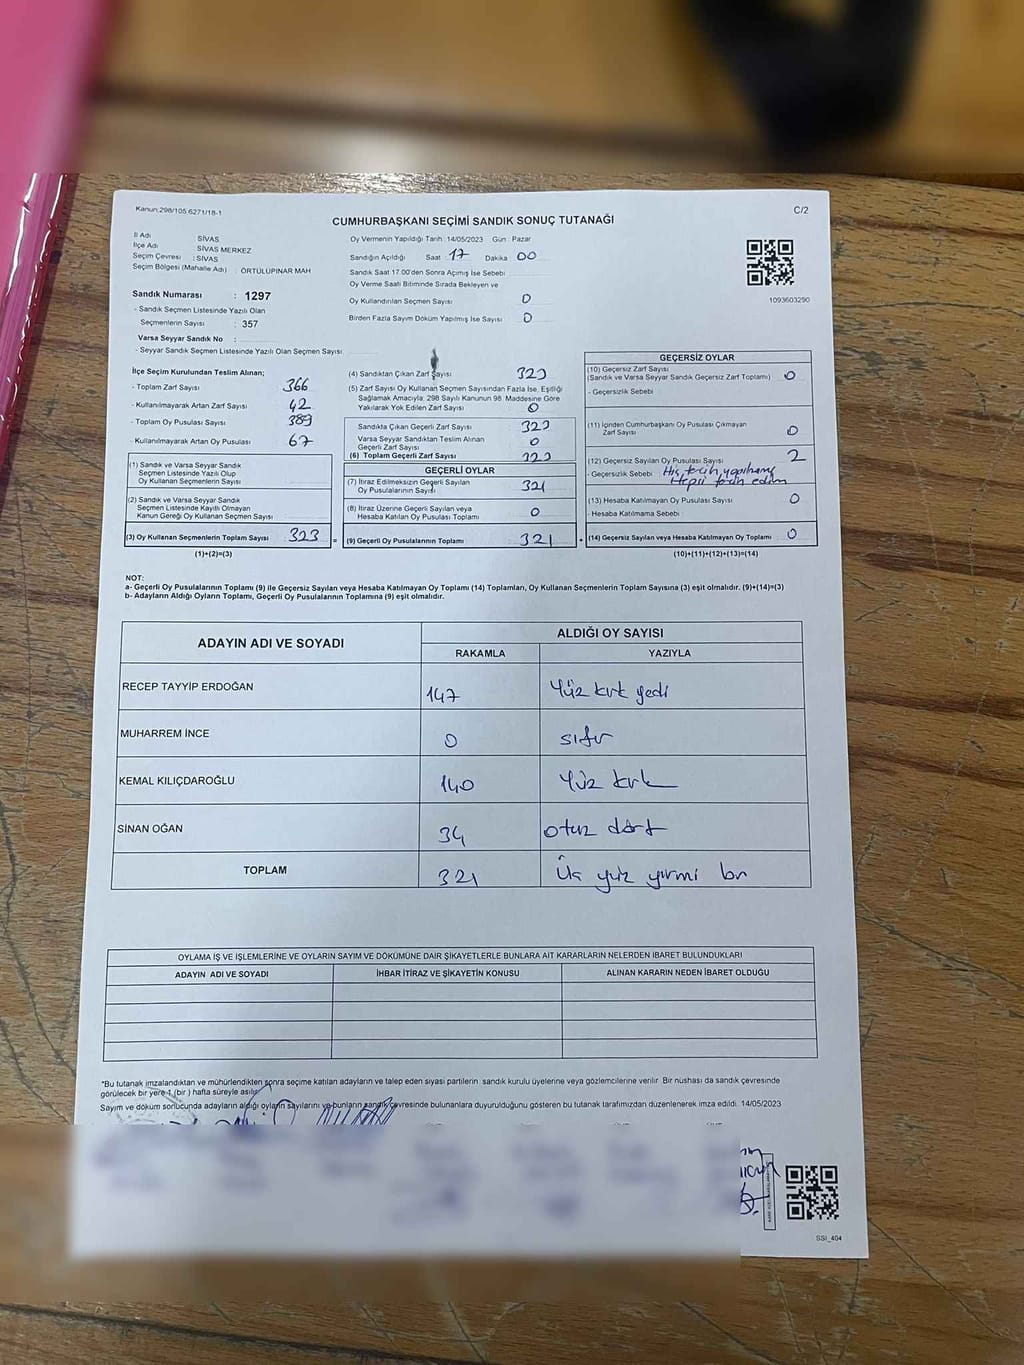 Kanun:298/105 6271/18-1
C/2
CUMHURBAŞKANI SEÇİMİ SANDIK SONUÇ TUTANAĞI
İl Adı SİVAS
İlçe Adı SİVAS MERKEZ
Seçim Çevresi : SİVAS
Seçim Bölgesi (Mahalle Adı) : ÖRTÜLÜPINAR MAH
Sandık Numarası : 1297
- Sandık Seçmen Listesinde Yazılı Olan
Seçmenlerin Sayısı : 357
Varsa Seyyar Sandık No :
- Seyyar Sandık Seçmen Listesinde Yazılı Olan Seçmen Sayısı:
Oy Vermenin Yapıldığı Tarih :14/05/2023 Gün : Pazar
Sandığın Açıldığı Saat 17 Dakika 00
Sandık Saat 17.00'den Sonra Açılmış İse Sebebi
Oy Verme Saati Bitiminde Sırada Bekleyen ve
Oy Kullandırılan Seçmen Sayısı 0
Birden Fazla Sayım Döküm Yapılmış İse Sayısı 0
1093603290
İlçe Seçim Kurulundan Teslim Alınan;
- Toplam Zarf Sayısı 366
- Kullanılmayarak Artan Zarf Sayısı 42
- Toplam Oy Pusulası Sayısı 389
- Kullanılmayarak Artan Oy Pusulası 67
(1) Sandık ve Varsa Seyyar Sandık
Seçmen Listesinde Yazılı Olup
Oy Kullanan Seçmenlerin Sayısı
(2) Sandık ve Varsa Seyyar Sandık
Seçmen Listesinde Kayıtlı Olmayan
Kanun Gereği Oy Kullanan Seçmen Sayısı
(3) Oy Kullanan Seçmenlerin Toplam Sayısı 323 =
(1)+(2)=(3)
(4) Sandıktan Çıkan Zarf Sayısı 323
(5) Zarf Sayısı Oy Kullanan Seçmen Sayısından Fazla İse, Eşitliği
Sağlamak Amacıyla; 298 Sayılı Kanunun 98. Maddesine Göre
Yakılarak Yok Edilen Zarf Sayısı 0
Sandıkta Çıkan Geçerli Zarf Sayısı 323
Varsa Seyyar Sandıktan Teslim Alınan
Geçerli Zarf Sayısı 0
(6) Toplam Geçerli Zarf Sayısı 323
GEÇERLİ OYLAR
(7) İtiraz Edilmeksizin Geçerli Sayılan
Oy Pusulalarının Sayısı 321
(8) İtiraz Üzerine Geçerli Sayılan veya
Hesaba Katılan Oy Pusulası Toplamı 0
(9) Geçerli Oy Pusulalarının Toplamı 321 +
GEÇERSİZ OYLAR
(10) Geçersiz Zarf Sayısı
(Sandık ve Varsa Seyyar Sandık Geçersiz Zarf Toplamı) 0
- Geçersizlik Sebebi
(11) İçinden Cumhurbaşkanı Oy Pusulası Çıkmayan
Zarf Sayısı 0
(12) Geçersiz Sayılan Oy Pusulası Sayısı 2
- Geçersizlik Sebebi Hiç tercih yapılmamış
Hepsi tercih edilmiş
(13) Hesaba Katılmayan Oy Pusulası Sayısı 0
- Hesaba Katılmama Sebebi
(14) Geçersiz Sayılan veya Hesaba Katılmayan Oy Toplamı 0
(10)+(11)+(12)+(13)=(14)
NOT:
a- Geçerli Oy Pusulalarının Toplamı (9) ile Geçersiz Sayılan veya Hesaba Katılmayan Oy Toplamı (14) Toplamları, Oy Kullanan Seçmenlerin Toplam Sayısına (3) eşit olmalıdır. (9)+(14)=(3)
b- Adayların Aldığı Oyların Toplamı, Geçerli Oy Pusulalarının Toplamına (9) eşit olmalıdır.
ADAYIN ADI VE SOYADI
ALDIĞI OY SAYISI
RAKAMLA YAZIYLA
RECEP TAYYİP ERDOĞAN 147 Yüz kırk yedi
MUHARREM İNCE 0 sıfır
KEMAL KILIÇDAROĞLU 140 Yüz kırk
SİNAN OĞAN 34 otuz dört
TOPLAM 321 Üç yüz yirmi bir
OYLAMA İŞ VE İŞLEMLERİNE VE OYLARIN SAYIM VE DÖKÜMÜNE DAİR ŞİKAYETLERLE BUNLARA AİT KARARLARIN NELERDEN İBARET BULUNDUKLARI
ADAYIN ADI VE SOYADI İHBAR İTİRAZ VE ŞİKAYETİN KONUSU ALINAN KARARIN NEDEN İBARET OLDUĞU
*Bu tutanak imzalandıktan ve mühürlendikten sonra seçime katılan adayların ve talep eden siyasi partilerin sandık kurulu üyelerine veya gözlemcilerine verilir. Bir nüshası da sandık çevresinde
görülecek bir yere 1 (bir) hafta süreyle asılır.
Sayım ve döküm sonucunda adayların aldığı oyların sayılarını ve bunların sandık çevresinde bulunanlara duyurulduğunu gösteren bu tutanak tarafımızdan düzenlenerek imza edildi. 14/05/2023
SSI_404